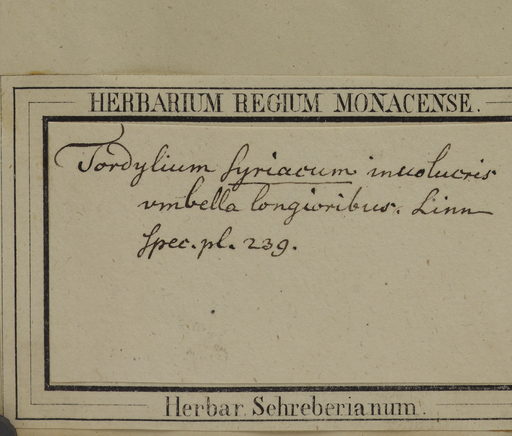 HERBARIUM REGIUM MONACENSE.
Tordylium syriacum involucris
vmbella longioribus. Linn
spec. pl. 239.
Herbar. Schreberianum.